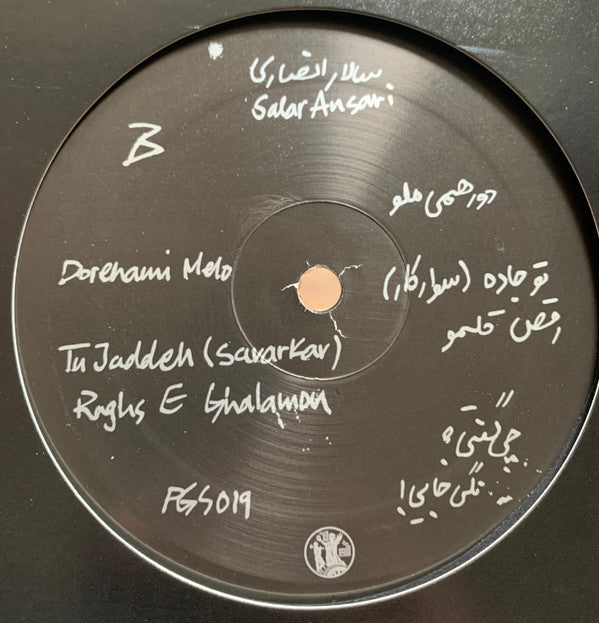 سالار انصاری
Salar Ansari
B
دورهمی ملو
Dorehami Melo
تو جاده (سوارکار)
Tu Jaddeh (Savarkar)
رقص قلمو
Raghs E Ghalamou
"چی گفتی؟
نگی جایی!"
PGS019